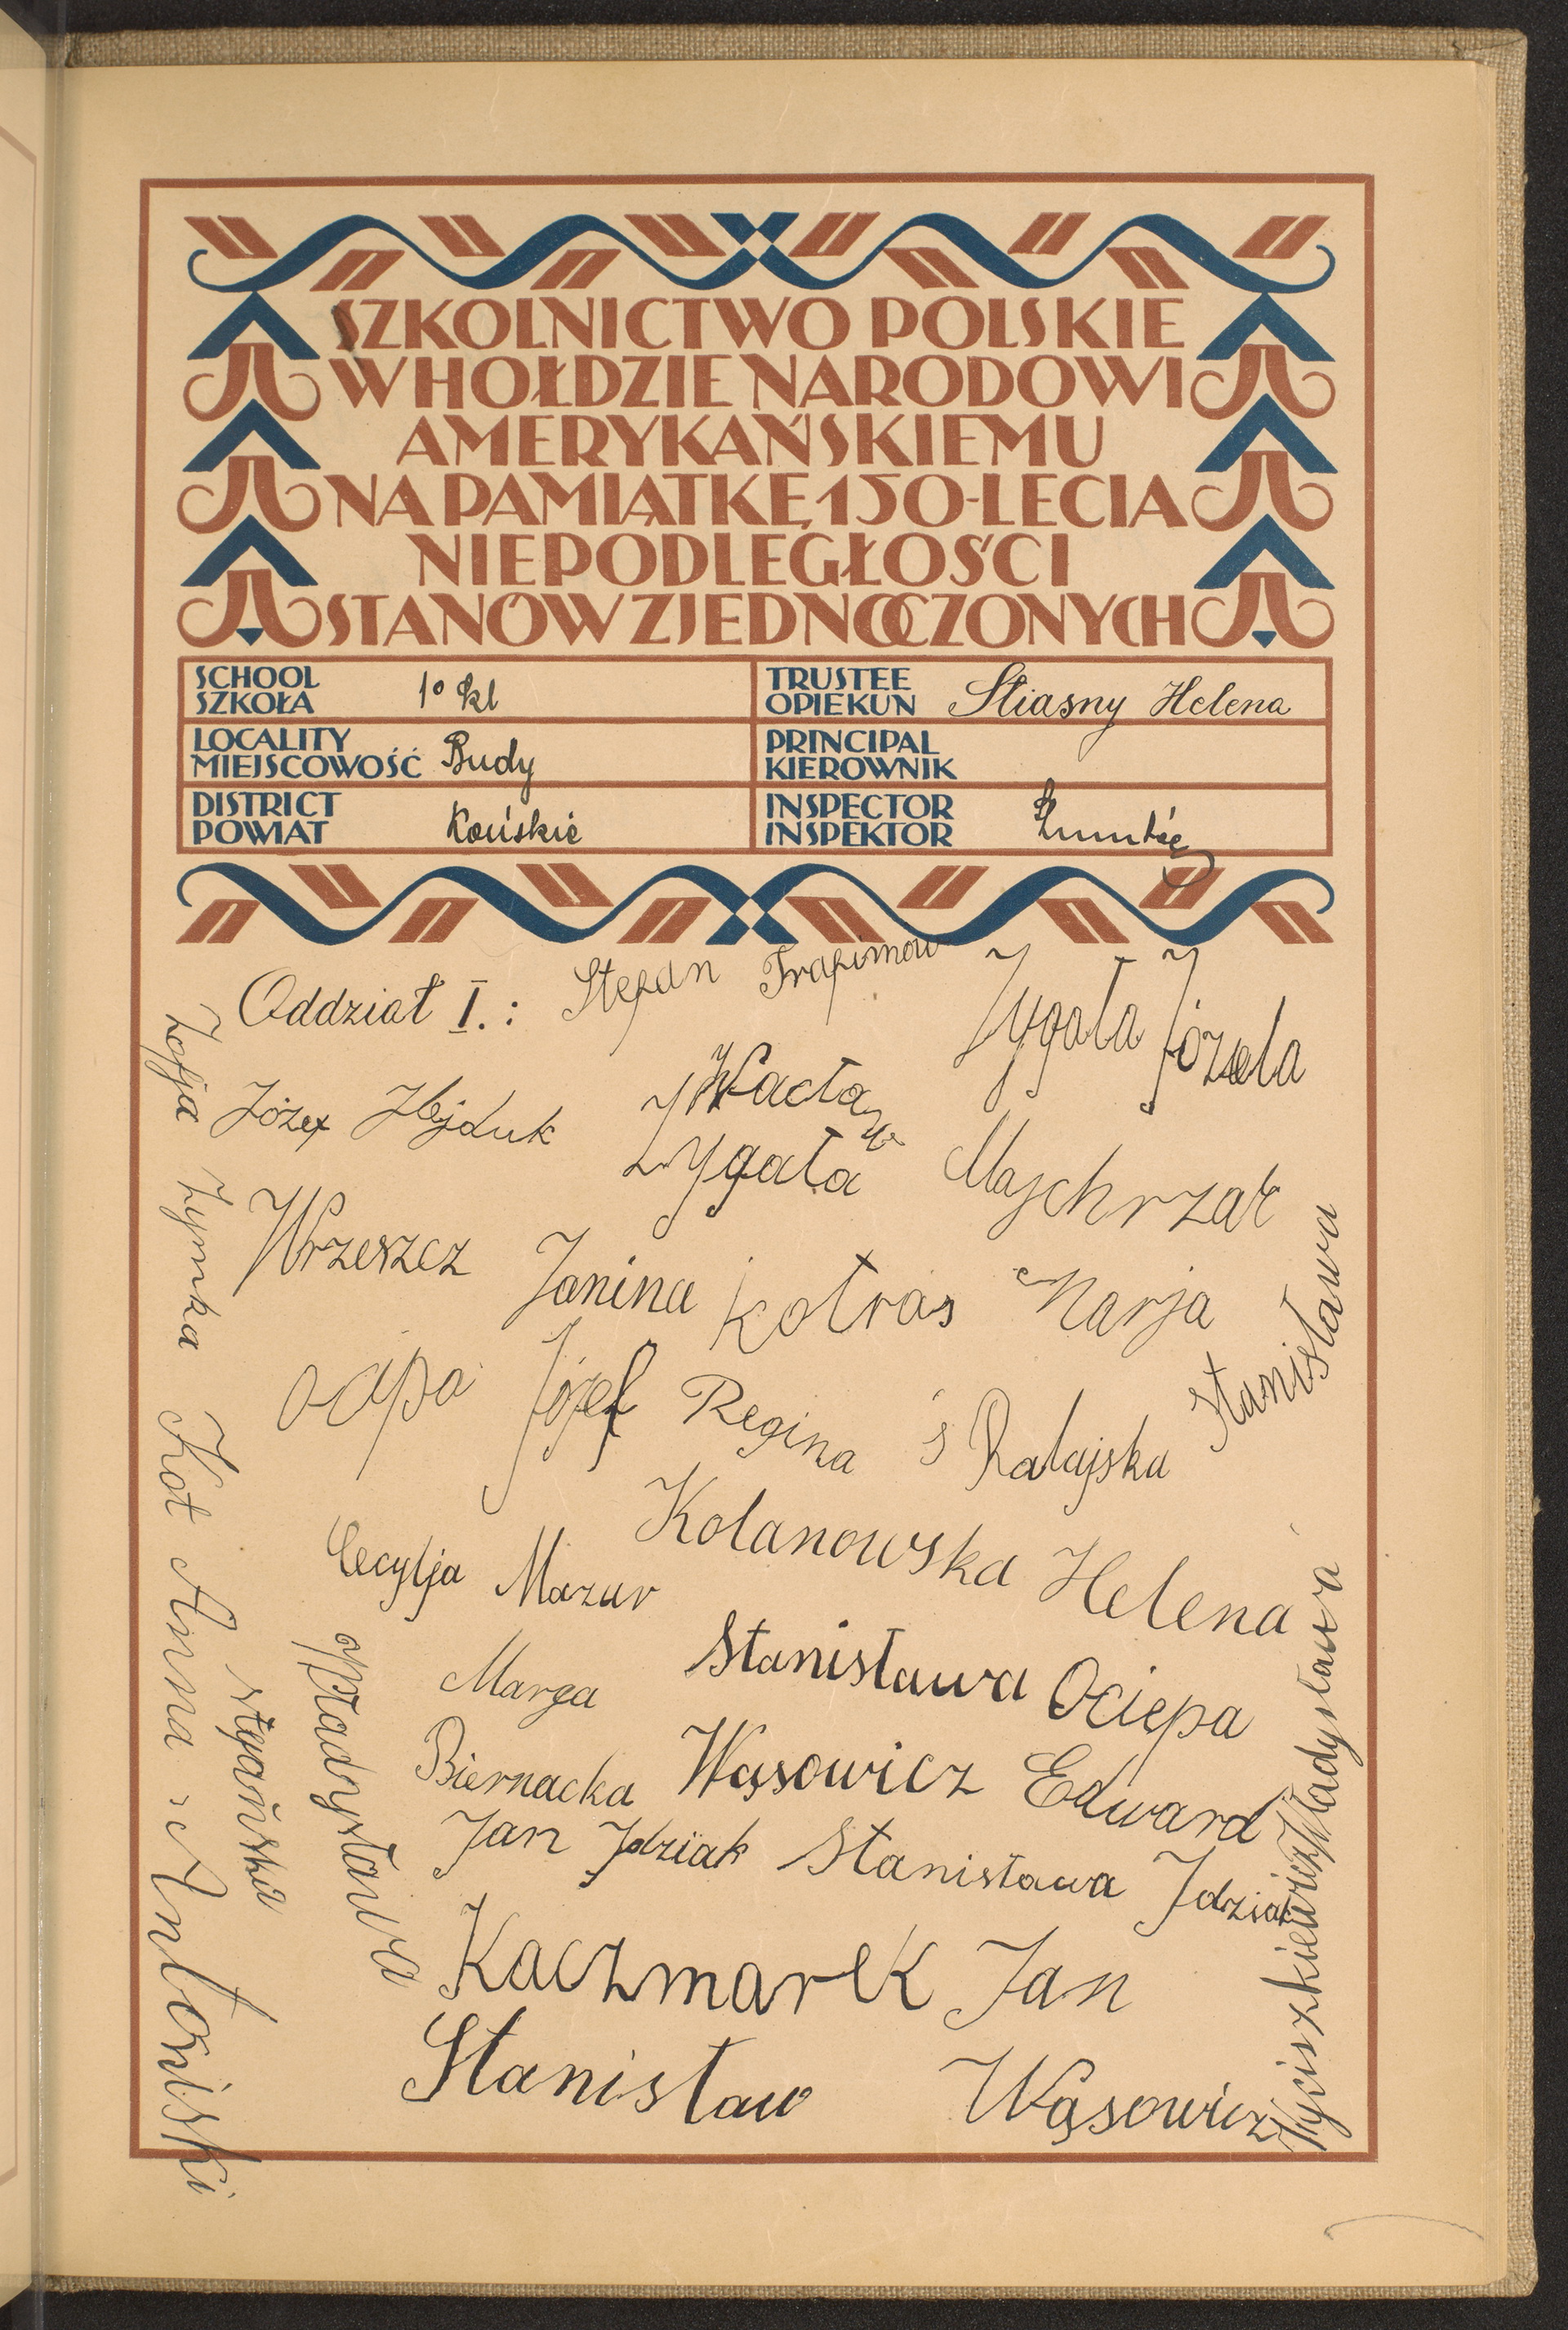 SZKOLNICTWO POLSKIE
W HOŁDZIE NARODOWI
AMERYKAŃSKIEMU
NA PAMIĄTKĘ 150-LECIA
NIEPODLEGŁOŚCI
STANÓW ZJEDNOCZONYCH
SCHOOL
SZKOŁA 1º kl
TRUSTEE
OPIEKUN Stiasny Helena
LOCALITY
MIEJSCOWOŚĆ Budy
PRINCIPAL
KIEROWNIK
DISTRICT
POWIAT Końskie
INSPECTOR
INSPEKTOR
Oddział I.: Stefan Trafimow
Zygała Józela
Józef Hejduk
Wacław
Zygała
Majchrzak
Wrzeszcz Janina
Kotras Marja
ocipa Józef
Regina Ratajska
Stanisława
Kolanowska Helena
Cecylja Mazur
Stanisława Ociepa
Marga
Biernacka
Wąsowicz Edward
Jan Jdziak
Stanisława Jdziak
Kaczmarek Jan
Stanisław Wąsowicz
Zofja Zymka
Kot Anna
Antoński
stgańska
Władysława
Wyciszkiewicz Władysława